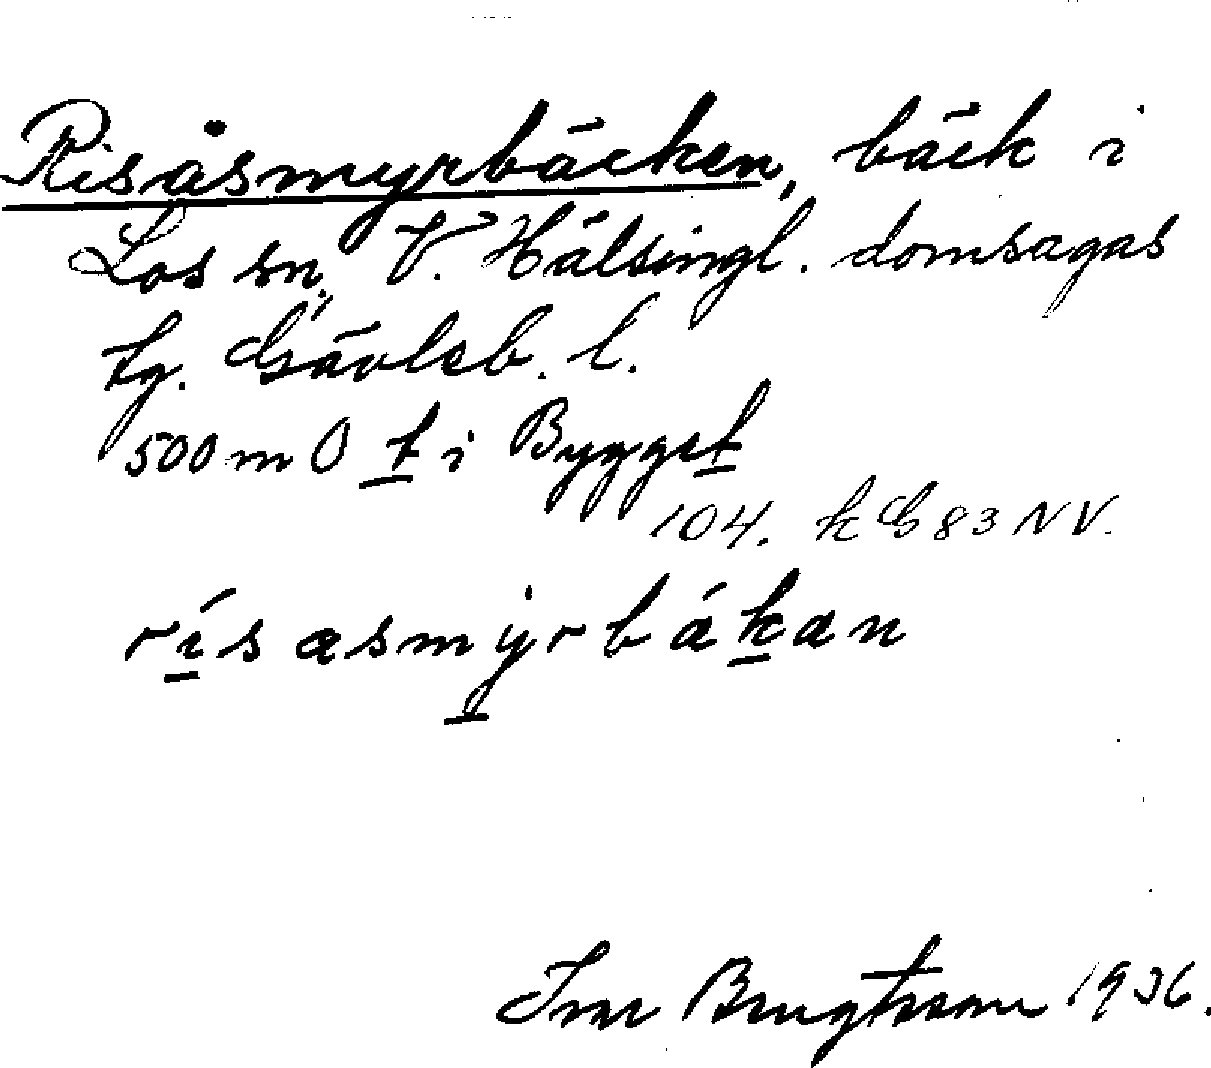 Risåsmyrbäcken, bäck i
Los sn, V. Hälsingl. domsagas
tg. Gävleb. l.
500 m O t i Bygget
104. k G 83 NV.
rísasmyrbákan
Ivar Bengtsson 1936.